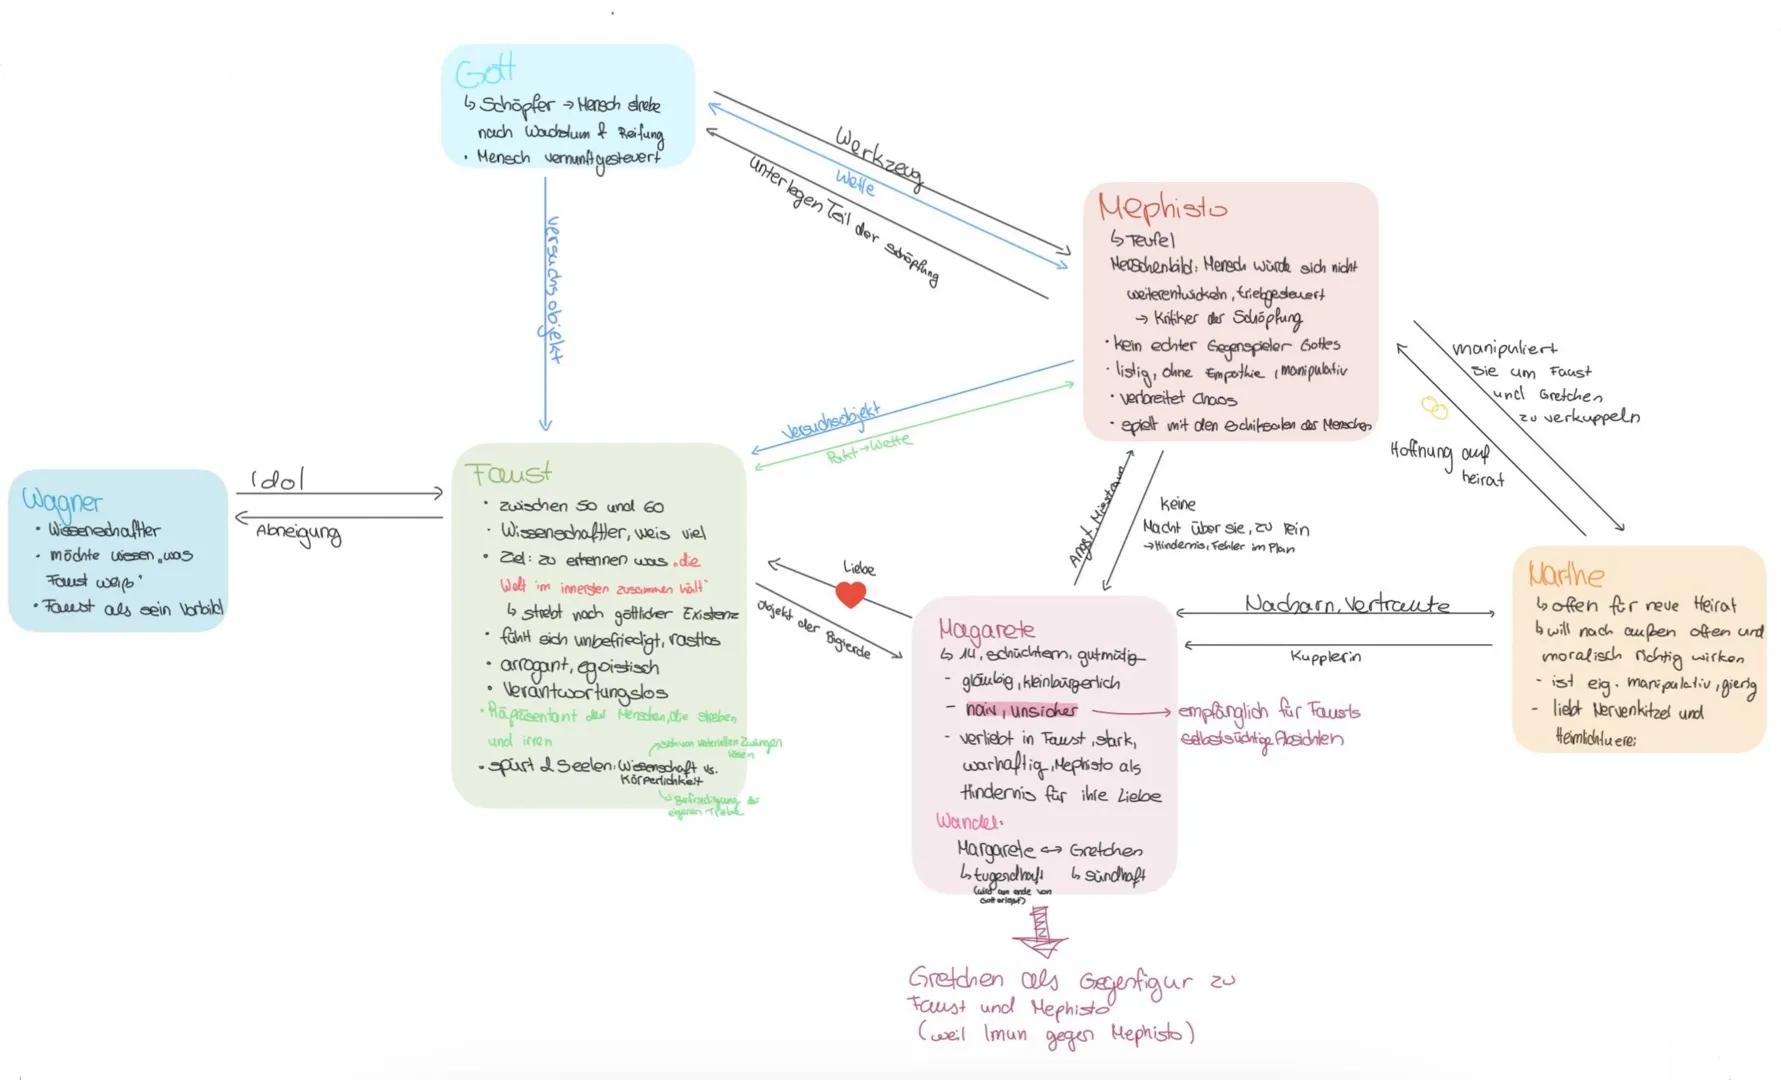 Gott
↳ Schöpfer → Mensch strebe
nach Wachstum & Reifung
• Mensch vernunftgesteuert
Werkzeug
Wette
unterlegen Teil der Schöpfung
versuchsobjekt
Mephisto
↳ Teufel
Menschenbild: Mensch würde sich nicht
weiterentwickeln, triebgesteuert
→ Kritiker der Schöpfung
• kein echter Gegenspieler Gottes
• listig, ohne Empathie, manipulativ
• verbreitet Chaos
• spielt mit den Schiksalen der Menschen
manipuliert
sie um Faust
und Gretchen
zu verkuppeln
Hoffnung auf
heirat
Versuchsobjekt
Pakt → Wette
Wagner
• Wissenschaftler
• möchte wissen, was
Faust weiß
• Faust als sein Vorbild
Idol
Abneigung
Faust
• zwischen 50 und 60
• Wissenschaftler, weis viel
• Ziel: zu erkennen was "die
Welt im innersten zusammen hält"
↳ strebt nach göttlicher Existenz
• fühlt sich unbefriedigt, rastlos
• arrogant, egoistisch
• Verantwortungslos
• Räpräsentant der Menschen, die streben
und irren
sich von materiellen Zwängen
lösen
• spürt 2 Seelen: Wissenschaft vs.
Körperlichkeit
↳ Befriedigung der
eigenen Triebe
Angst, Misstraun
keine
Macht über sie, zu rein
→ Hindernis, Fehler im Plan
Liebe
Objekt der Bigierde
Magarete
↳ 14, schüchtern, gutmütig
- gläubig, kleinbürgerlich
- naiv, unsicher → empfänglich für Fausts
selbstsüchtige Absichten
- verliebt in Faust, stark,
warhaftig, Mephisto als
Hindernis für ihre Liebe
Wandel:
Margarete ↔ Gretchen
↳ tugendhaft ↳ sündhaft
(wird am ende von
Gott erlöst)
Nacharn, Vertraute
Kupplerin
Marthe
↳ offen für neue Heirat
↳ will nach außen offen und
moralisch richtig wirken
- ist eig. manipulativ, gierig
- liebt Nervenkitzel und
Heimlichtuerei
Gretchen als Gegenfigur zu
Faust und Mephisto
(weil Imun gegen Mephisto)